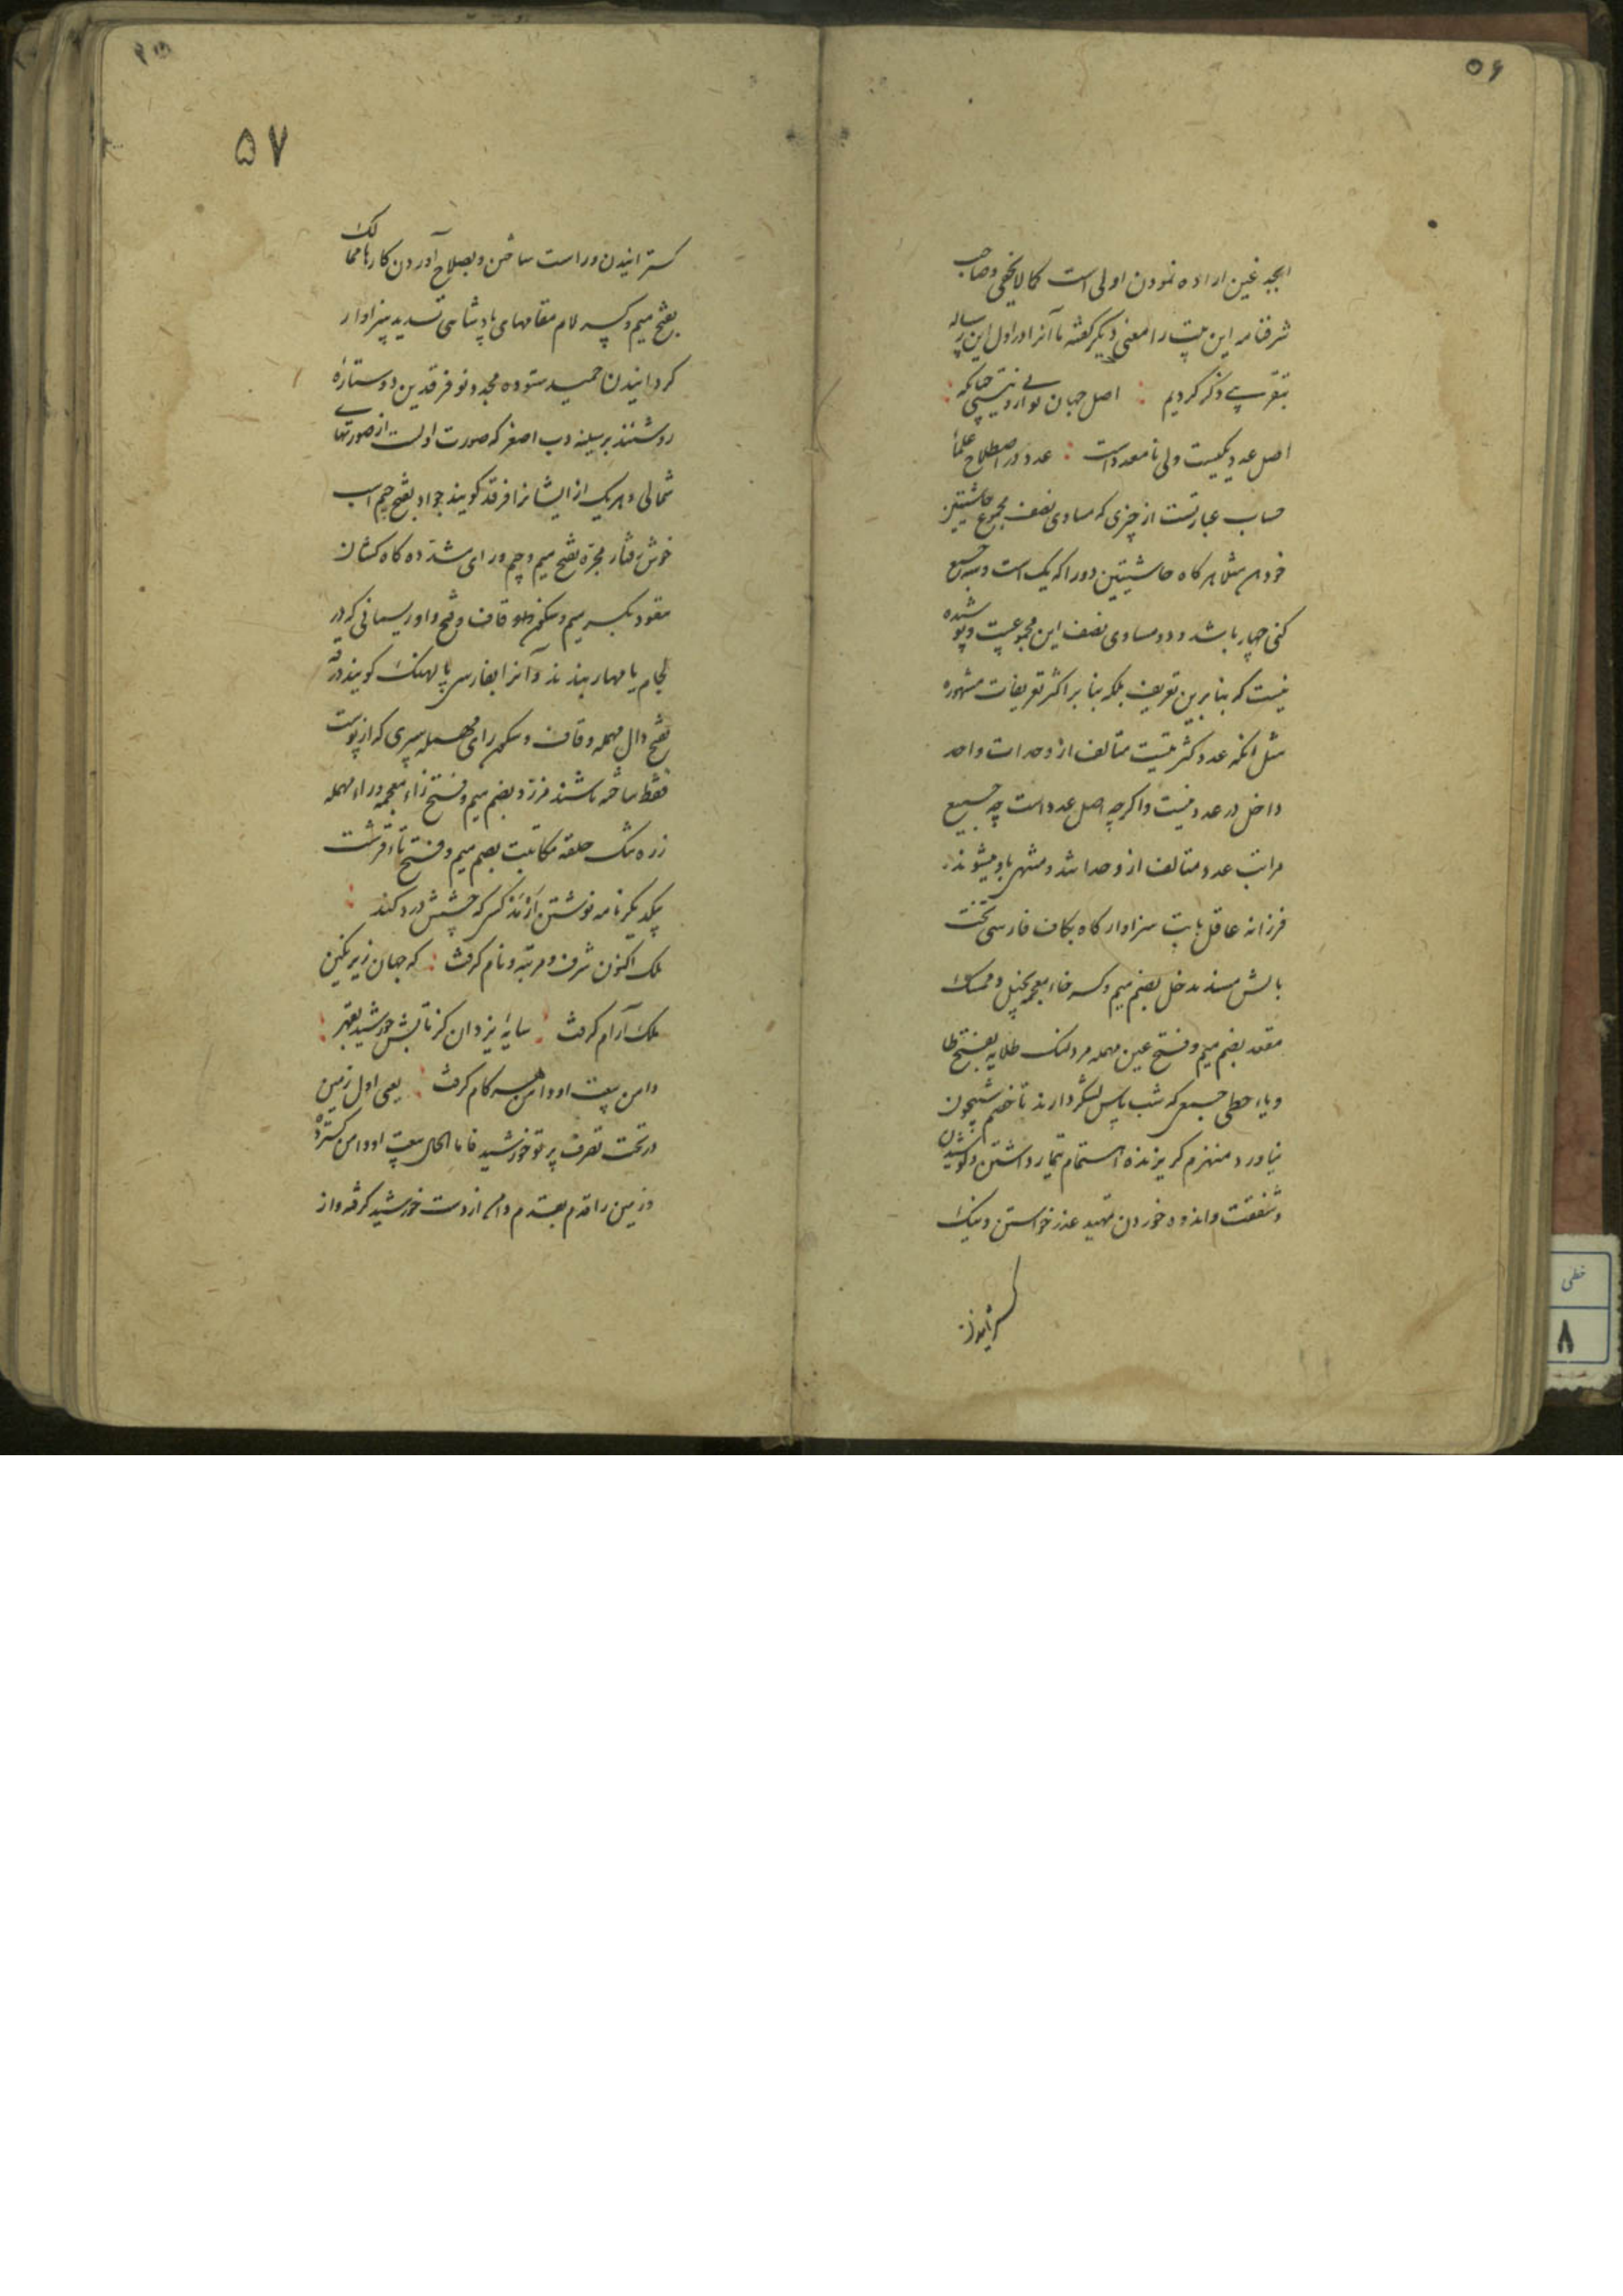 ۵۶
ابجد غین اراده نمودن اولی است کما لایخفی و صاحب
شرفنامه این بیت را معنی دیگر گفته ما آنرا در اول این رساله
بتقریبی ذکر کردیم : اصل جهان تو ارد نیستی چنانکه :
اصل عدد یکیست ولی نامعدد است : عدد در اصطلاح علماء
حساب عبارتست از چیزی که مساوی نصف مجموع حاشیتین
خود مثلا هرگاه حاشیتین دو را که یک است و سه جمع
کنی چهار باشد و دو مساوی نصف این مجموعست و پوشیده
نیست که بنا برین تعریف بلکه بنا بر اکثر تعریفات مشهوره
مثل انکه عدد کثرتیست متالف از وحدات واحد
داخل در عدد نیست و اگرچه اصل عدد است چه جمیع
مراتب عدد متالف از وحداتند و منتهی باو میشوند
فرزانه عاقل بابت سزاوار گاه بکاف فارسی تخت
بالش مسند مدخل بضم میم و کسر خاء معجمه بخیل و ممسک
مقعد بضم میم و فتح عین مهمله مرد لنک طلایه بفتح طا
و یاء حطی جمعی که شب پاس لشکر دارند تا خصم شبیخون
نیاورد منهزم گریزنده اهتمام تیمار داشتن و کوشیدن
و شفقت و اندوه خوردن تمهید عذر خواستن و نیک
گسترانیدن
۵۷
گسترانیدن و راست ساختن و بصلاح آوردن کارها ممالک
بفتح میم و کسر لام مقامهای پادشاهی تسدید سزاوار
گردانیدن حمید ستوده مجدد نو فرقدین دو ستاره
روشنند بر سینه دب اصغر که صورت اولست از صورتهای
شمالی و هر یک از ایشانرا فرقد گویند جواد بفتح جیم اسب
خوش رفتار مجره بفتح میم و جیم و رای مشدده کاه کشان
مقود بکسر میم و سکون قاف و فتح واو ریسمانی که در
لجام یا مهار بندند و آنرا بفارسی پالهنگ گویند درقه
بفتح دال مهمله و قاف و سکون رای مهمله سپری که از پوست
فقط ساخته باشند مزرد بضم میم و فتح زاء معجمه و راء مهمله
زره تنگ حلقه مکاتبت بضم میم و فتح تاء قرشت
بیکدیگر نامه نوشتن ارمد کسی که چشمش درد کند :
ملک اکنون شرف و مرتبه و نام گرفت : که جهان زیر نگین
ملک آرام گرفت : سایه یزدان کز تابش خورشید بقهر :
دامن بیعت او دامن هر کام گرفت : یعنی اول زمین
در تحت تصرف پرتو خورشید فاما الحال بیعت او دامن گسترده
و زمین را قدم بقدم دامن از دست خورشید گرفته و از
خطی
۸